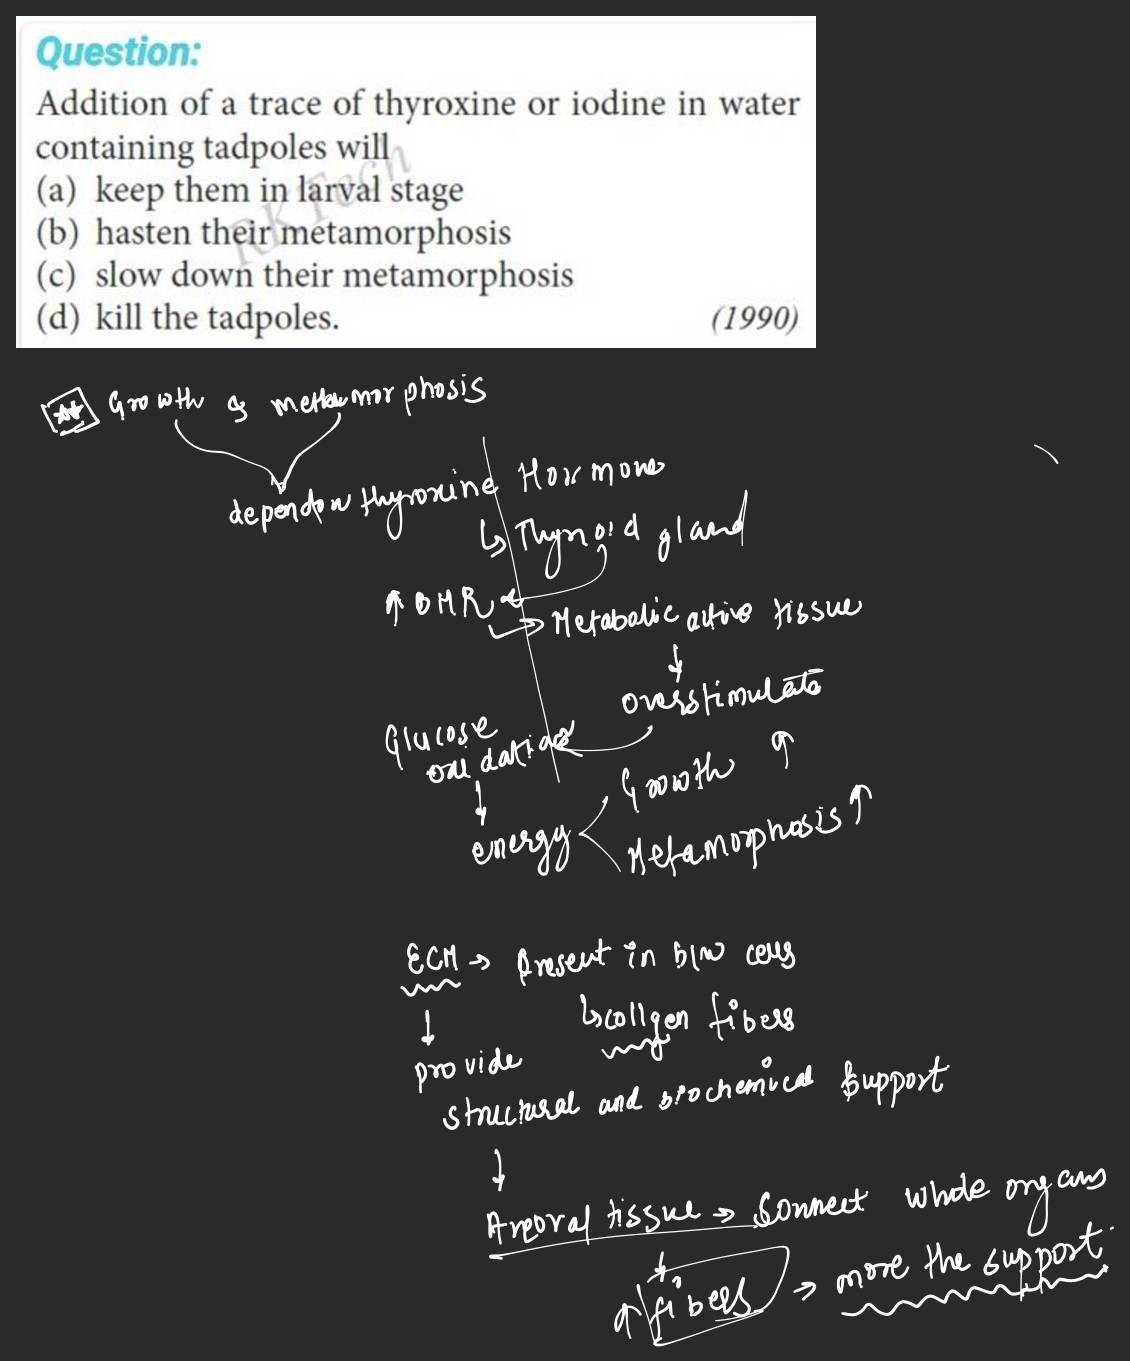 Question:
Addition of a trace of thyroxine or iodine in water
containing tadpoles will
(a) keep them in larval stage
(b) hasten their metamorphosis
(c) slow down their metamorphosis
(d) kill the tadpoles.
(1990)
RK Tech
Growth & metamorphosis
depend on thyroxine Hormone
↳ Thyroid gland
↑ BMR
→ Metabolic active tissue
↓
overstimulate
Glucose
oxidation
↓
Growth ↑
energy
Metamorphosis ↑
ECM → present in b/w cells
↓
↳ collgen fibers
provide
structural and biochemical support
↓
Areoral tissue → Connect whole organs
↓
↑ fibers → more the support.